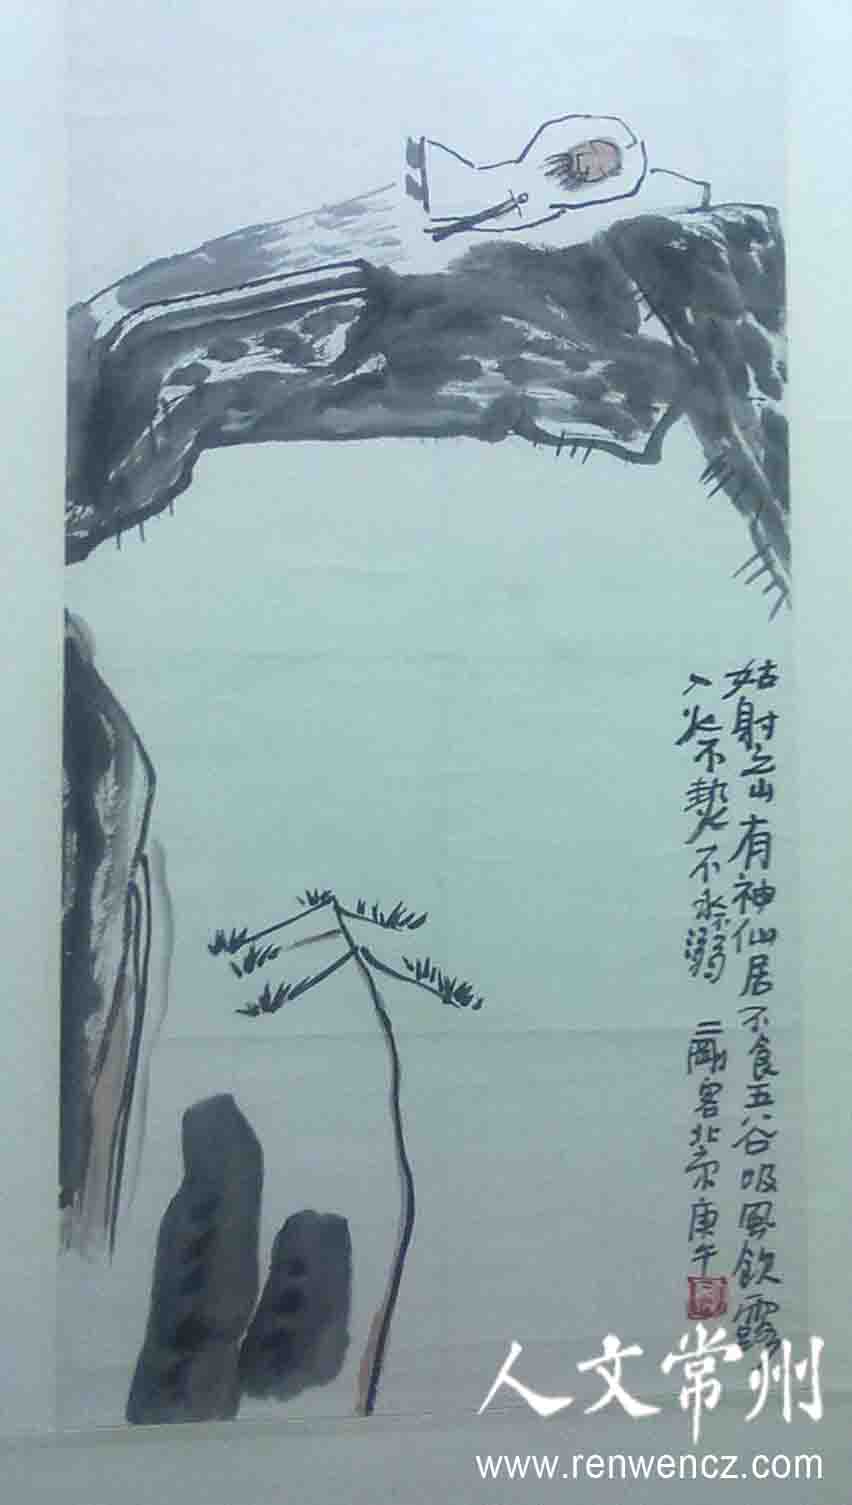 姑射之山有神仙居不食五谷吸風飲露
入火不熱不水溺 二剛客北京庚午
人文常州
www.renwencz.com